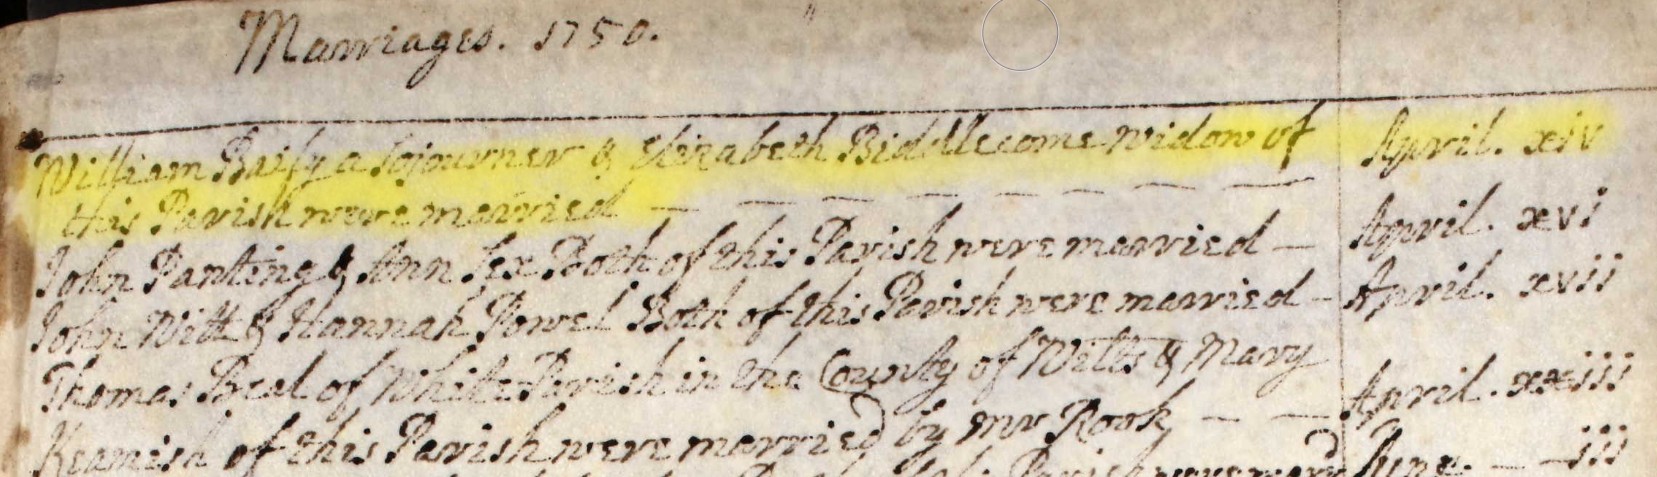 Marriages. 1750.
William Baily a Sojourner & Elizabeth Biddlecome Widow of April. xiv
this Parish were married — — — — — — —
John Panting & Ann Lex Both of this Parish were married — April. xvi
John Witt & Hannah Powel Both of this Parish were married — April. xvii
Thomas Beal of White Parish in the County of Wilts & Mary
Keamish of this Parish were married by mr Rook — — April. xxiii
Parish were marrd June. — — iii